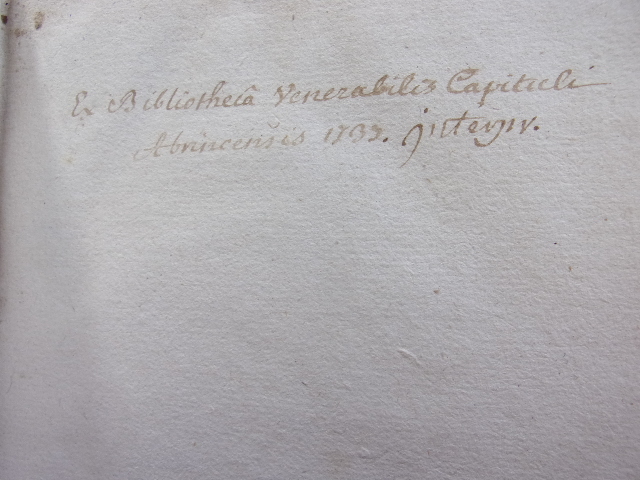 Ex Bibliothecâ Venerabilis Capituli
Abrincensis 1737.